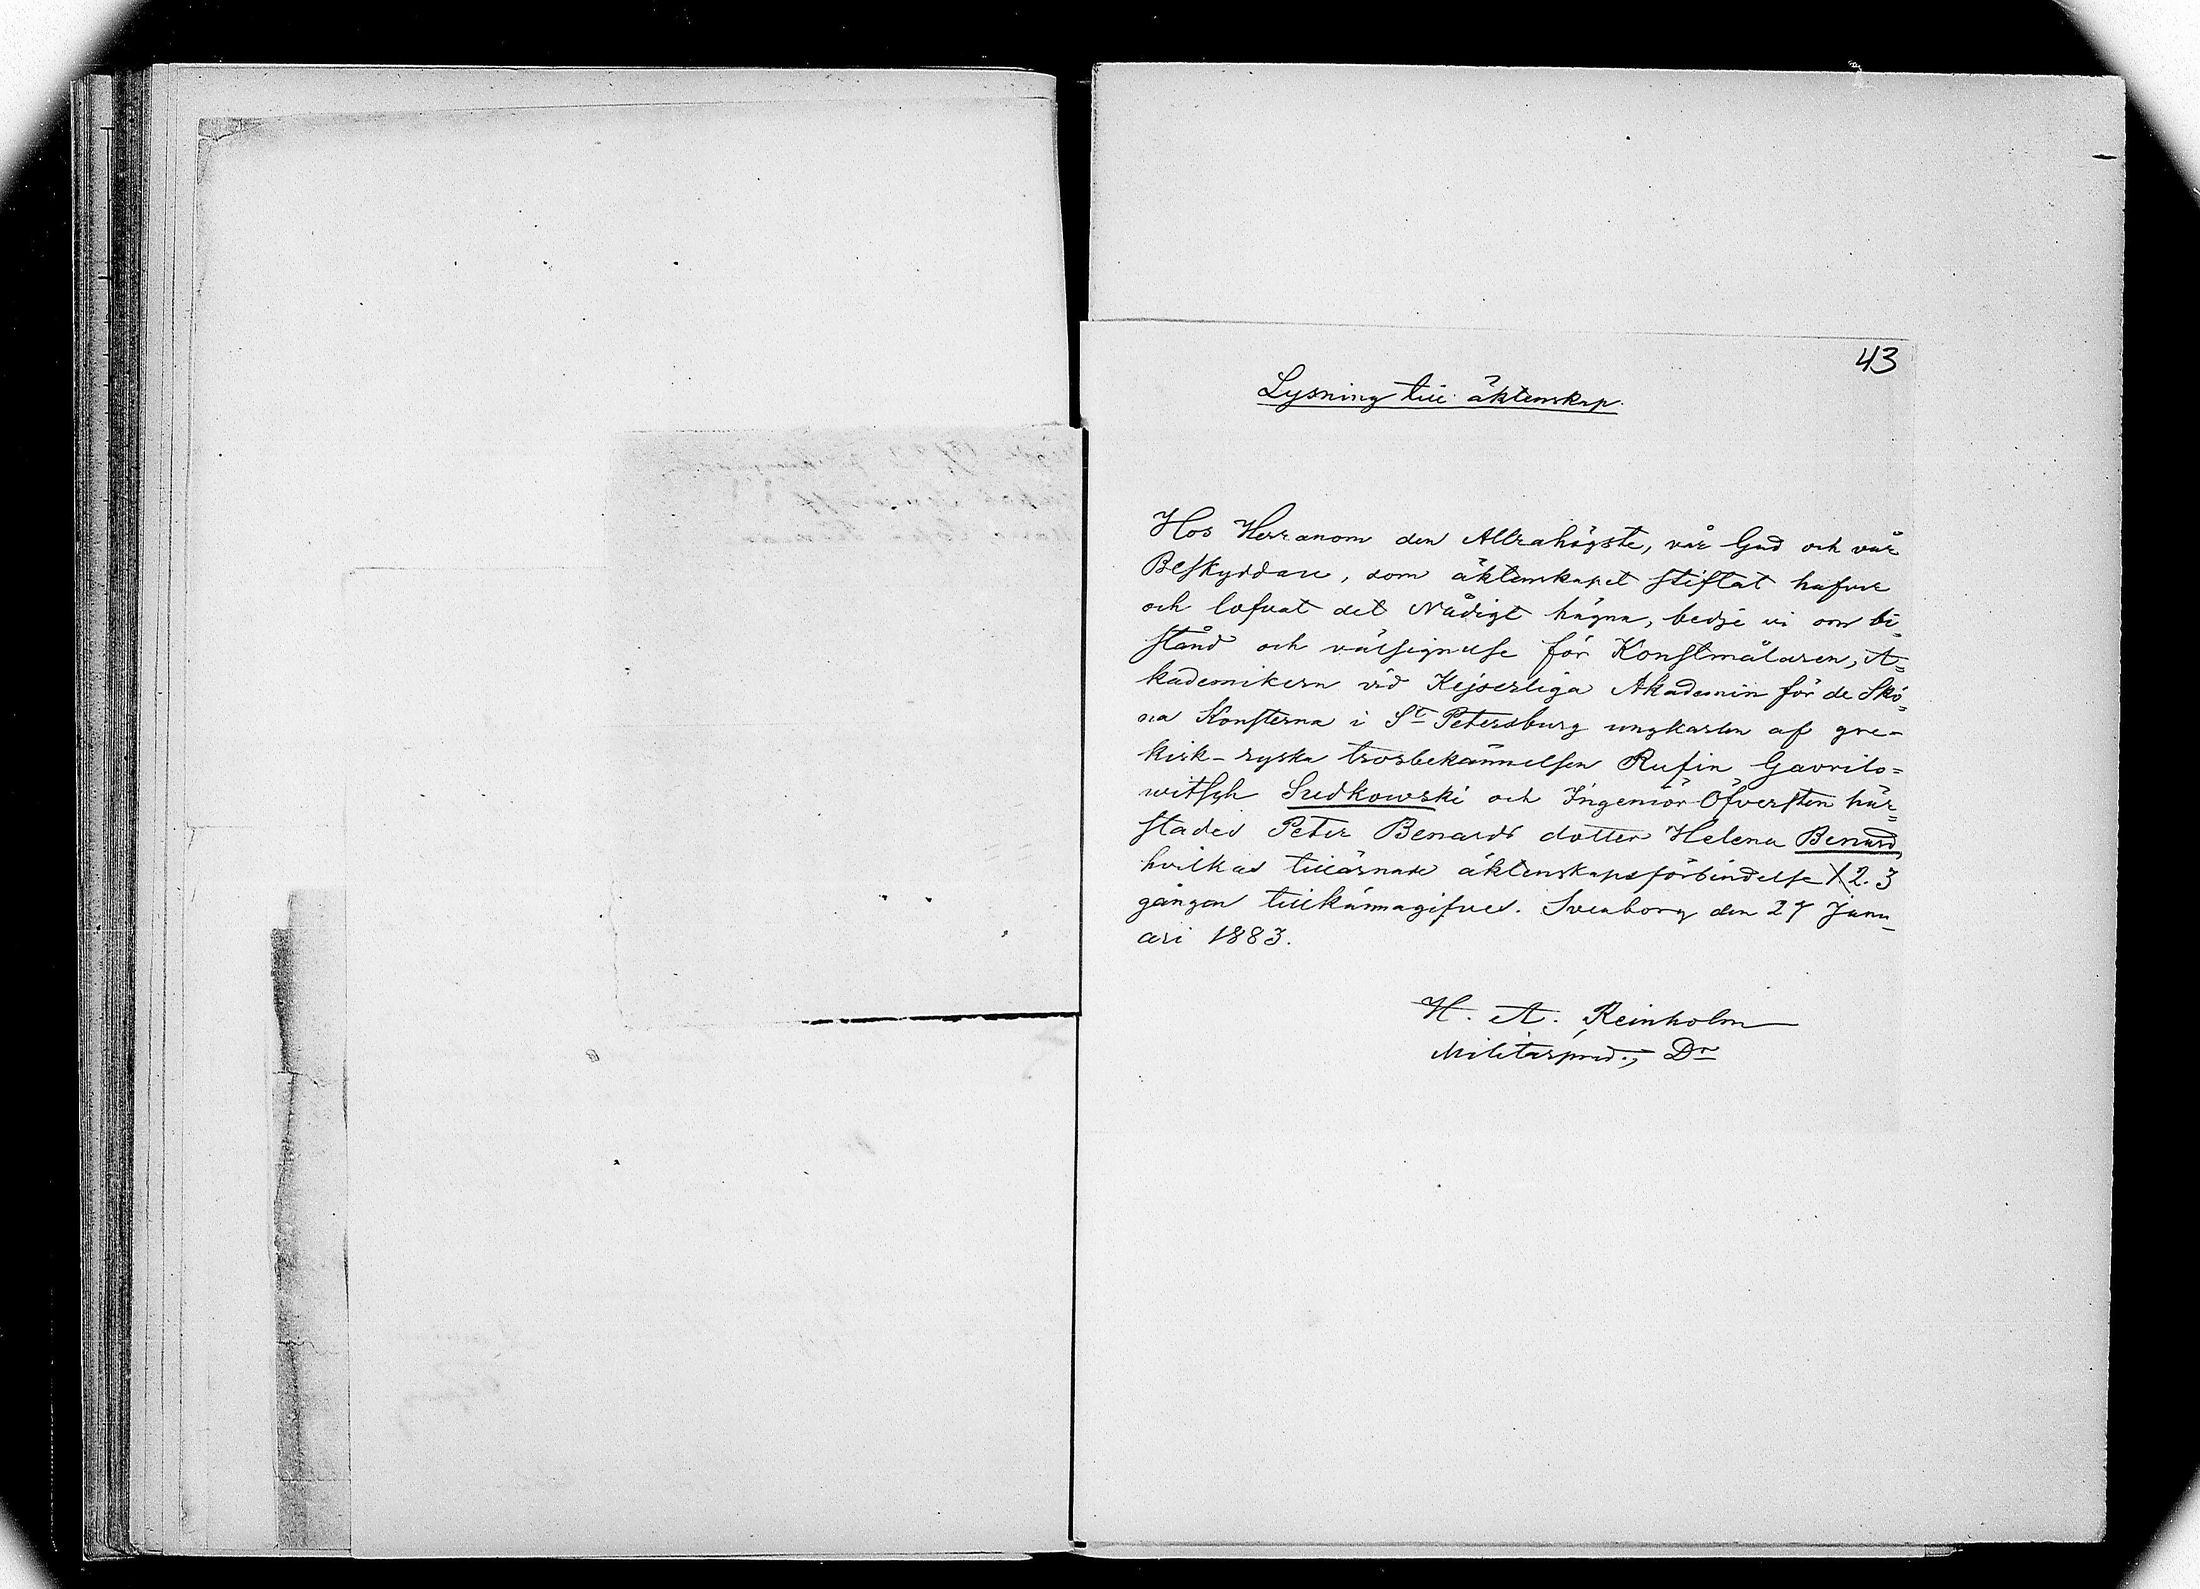 43
Lysning till äktenskap.
Hos Herranom den Allrahögste, vår Gud och vår
Beskyddare, som äktenskapet stiftat hafver
och lofvat det Nådigt hägna, bedje vi om bi=
stånd och välsignelse för Konstmålaren, A=
kademikern vid Kejserliga Akademin för de Skö=
na Konsterna i St Petersburg ungkarlen af gre-
kisk-ryska trosbekännelsen Rufin Gavrilo=
witsch Sudkowski och Ingeniör Öfversten här=
stades Peter Benards dotter Helena Benard,
hvilkas tillärnade äktenskapsförbindelse 1. 2. 3
gången tillkännagifves. Sveaborg den 27 Janu-
ari 1883.
H. A. Reinholm
Militärpred., Dr